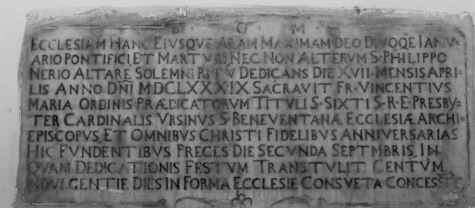 D O M
ECCLESIAM HANC EIVSQVE ARAM MAXIMAM DEO DIVOQE IANV-
ARIO PONTIFICI ET MARTYRI, NEC NON ALTERVM S·PHILIPPO
NERIO ALTARE SOLEMNI RITV DEDICANS DIE XVII·MENSIS APRI-
LIS ANNO DNI MDCLXXXIX SACRAVIT FR·VINCENTIVS
MARIA ORDINIS PRÆDICATORVM TITVLI S·SIXTI S·R·E·PRESBY-
TER CARDINALIS VRSINVS S·BENEVENTANÆ ECCLESIÆ ARCHI-
EPISCOPVS, ET OMNIBVS CHRISTI FIDELIBVS ANNIVERSARIAS
HIC FVNDENTIBVS PRECES DIE SECVNDA SEPTMBRIS, IN
QVAM DEDICATIONIS FESTVM TRANSTVLIT CENTVM
INDVLGENTIE DIES IN FORMA ECCLESIE CONSVETA CONCESSIT